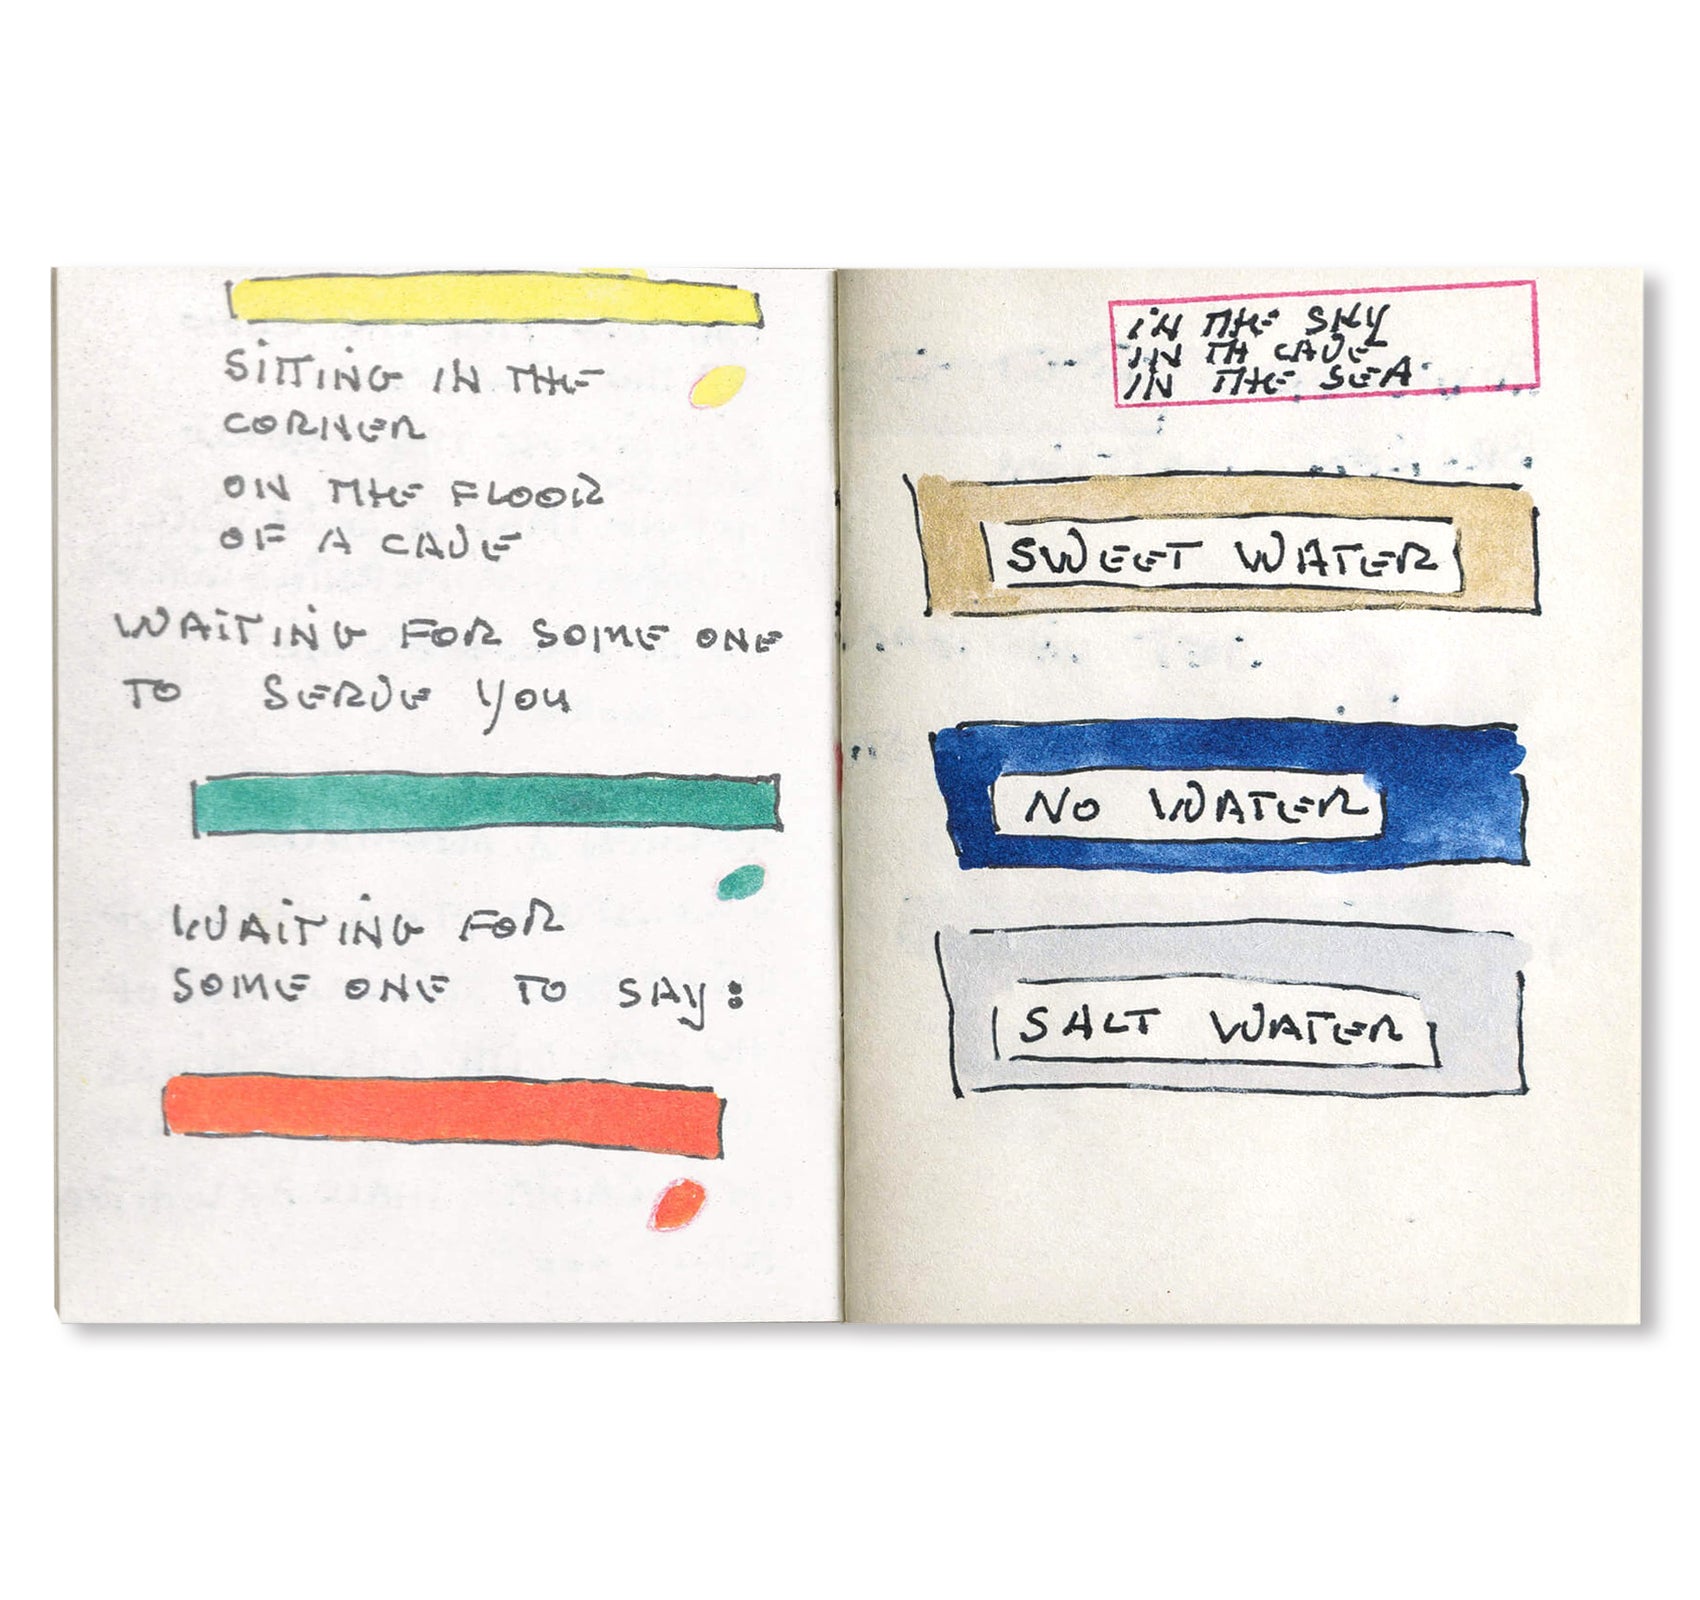 SiTTiNG IN THE
CORNER
ON THE FLOOR
OF A CAVE
WAiTiNG FOR SOME ONE
TO SERVE YOU
WAiTiNG FOR
SOME ONE TO SAY:
iN THE SKY
IN TH CAVE
IN THE SEA
SWEET WATER
NO WATER
SALT WATER